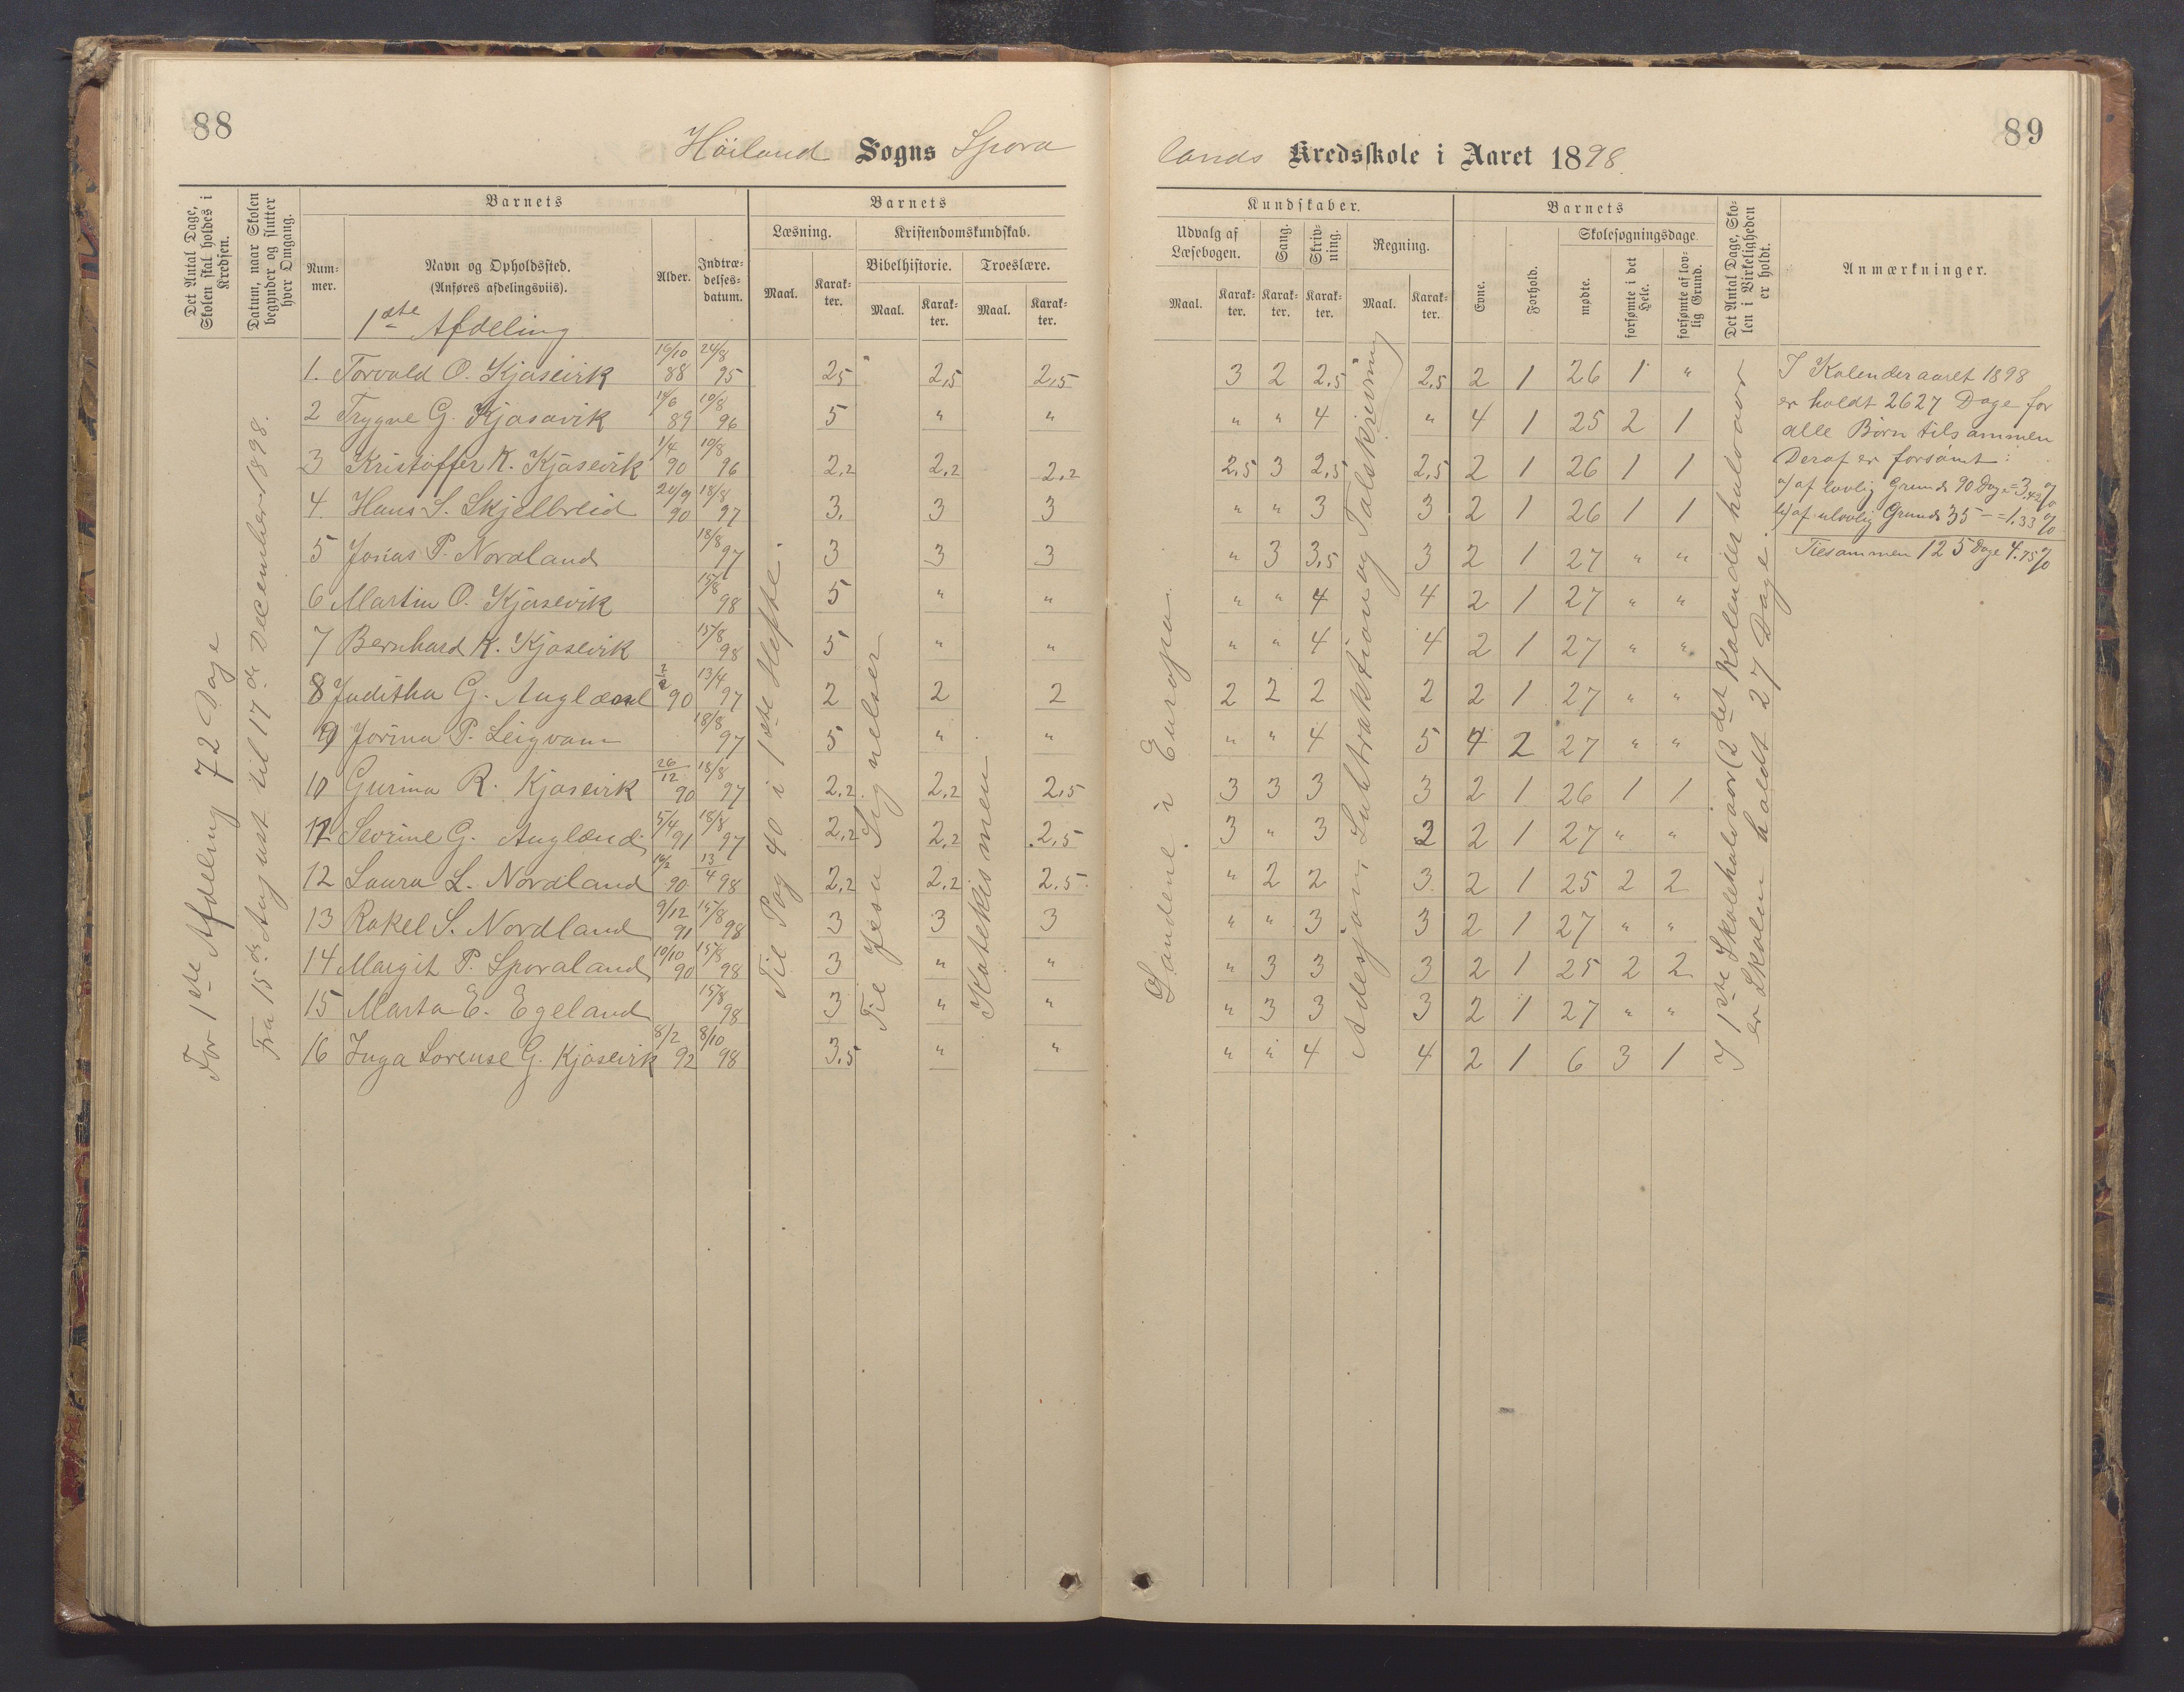 88
Höiland Sogns Spora
Det Antal Dage, Skolen skal holdes i Kredsen.
Datum, naar Skolen begynder og slutter hver Omgang.
Barnets
Nummer.
Navn og Opholdssted.
(Anføres afdelingsviis).
Alder.
Indtrædelsesdatum.
Barnets
Læsning.
Kristendomskundskab.
Bibelhistorie.
Troeslære.
Maal.
Karakter.
Maal.
Karakter.
Maal.
Karakter.
1ste Afdeling
For 1ste Afdeling 72 Dage
Fra 15de August til 17de December 1898.
Til Pag 40 i 1ste Hefte.
Til Jesu Lignelser
Katekismen
1. Torvald O. Kjosevik 16/10 88 24/8 95 2,5 2,5 2,5
2 Trygve G. Kjosavik 14/6 89 10/8 96 5 " "
3 Kristoffer K. Kjosevik 1/4 90 10/8 96 2,2 2,2 2,2
4. Hans S. Skjelbreid 20/9 90 18/8 97 3. 3 3
5 Jonas P. Nordland 18/8 97 3 3 3
6 Martin O. Kjosevik 15/8 98 5 " "
7 Bernhard K. Kjosevik 15/8 98 5 " "
8 Juditha G. Auglænd 90 13/4 97 2 2 2
9 Jorina P. Leigvam 18/8 97 5 " "
10 Gurina R. Kjosevik 26/12 90 18/8 97 2,2 2,2 2,5
11 Sevrine G. Auglænd 5/4 91 18/8 97 2,2 2,2 2,5
12 Laura L. Nordland 16/2 90 13/4 98 2,2 2,2 2,5
13 Rakel S. Nordland 9/12 91 15/8 98 3 3 3
14 Margit P. Sporaland 10/10 90 15/8 98 3 " "
15 Marta E. Egeland 15/8 98 3 " "
16 Inga Lorense G. Kjosevik 8/2 92 8/10 98 3,5 " "
89
lands Kredsskole i Aaret 1898.
Kundskaber.
Udvalg af Læsebogen.
Sang.
Skrivning.
Regning.
Maal.
Karakter.
Karakter.
Karakter.
Maal.
Karakter.
Barnets
Evne.
Forhold.
Skolesøgningsdage.
mødte.
forsømte i det Hele.
forsømte af lovlig Grund.
Det Antal Dage, Skolen i Virkeligheden er holdt.
Anmærkninger.
Landene i Europa.
Adesjon, Subtraktion og Talskrivning
I 1ste Skolehalvaar (2det Kalenderhalvaar
er Skolen holdt 27 Dage.
3 2 2,5 2,5 2 1 26 1 "
" " 4 " 4 1 25 2 1
2,5 3 2,5 2,5 2 1 26 1 1
" " 3 3 2 1 26 1 1
" 3 3,5 3 2 1 27 " "
" " 4 4 2 1 27 " "
" " 4 4 2 1 27 " "
2 2 2 2 2 1 27 " "
" " 4 5 4 2 27 " "
3 3 3 3 2 1 26 1 1
3 " 3 3 2 1 27 " "
" 2 2 3. 2 1 25 2 2
" " 3 3 2 1 27 " "
" 3 3 3 2 1 25 2 2
" 3 3 3 2 1 27 " "
" " 4 4 2 1 6 3 1
I Kalenderaaret 1898
er holdt 2627 Dage for
alle Børn tilsammen
Deraf er forsømt:
a) af lovlig Grund 90 Dage = 3,42 %
b) af ulovlig Grund 35 — = 1,33 %
Tilsammen 125 Dage 4.75 %